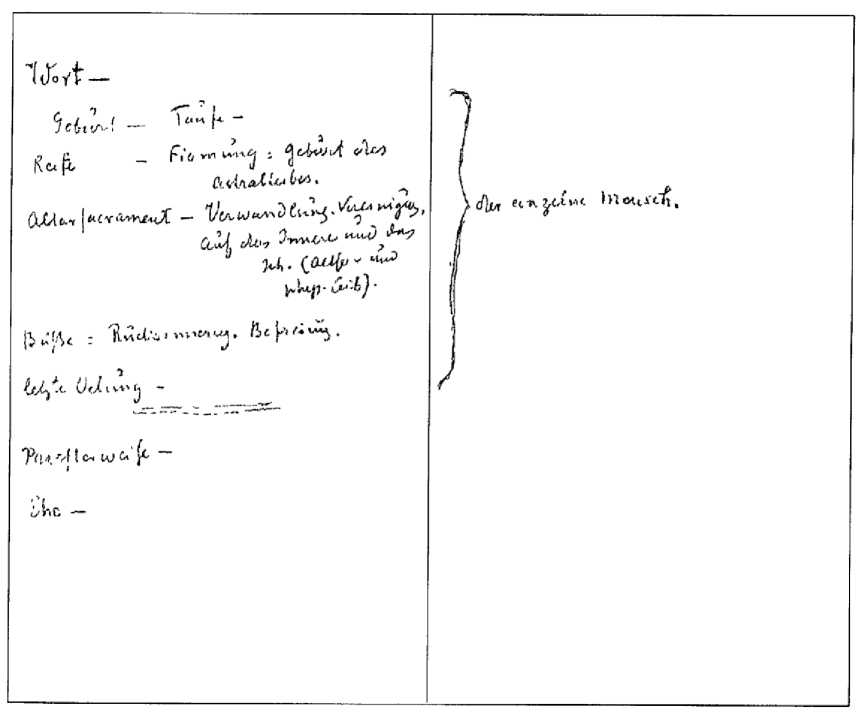 Wort —
Geburt — Taufe —
Reife — Firmung : Geburt des
Astralleibes.
Altarsacrament — Verwandlung. Vereinigung,
auf das Innere und das
Ich. (Aether- und
phys. Leib).
der einzelne Mensch.
Buße : Befreiung.
letzte Oelung —
Priesterweihe —
Ehe —